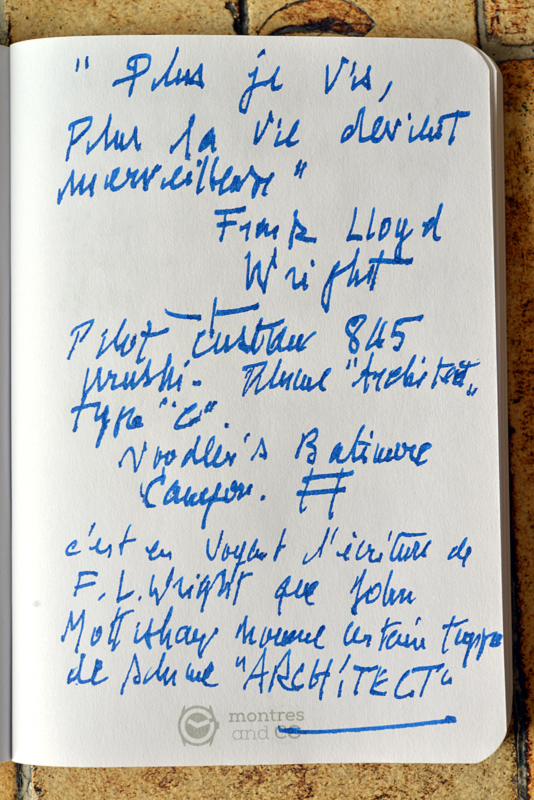 " Plus je vis,
Plus la vie devient
merveilleuse "
Frank Lloyd
Wright
Pilot Custom 845
urushi. Plume "Architect"
type "C".
Noodler's Batimore
Canyon.
c'est en voyant l'écriture de
F. L. Wright que John
nomme certain type
de plume "ARCHiTECT"
montres
and CO